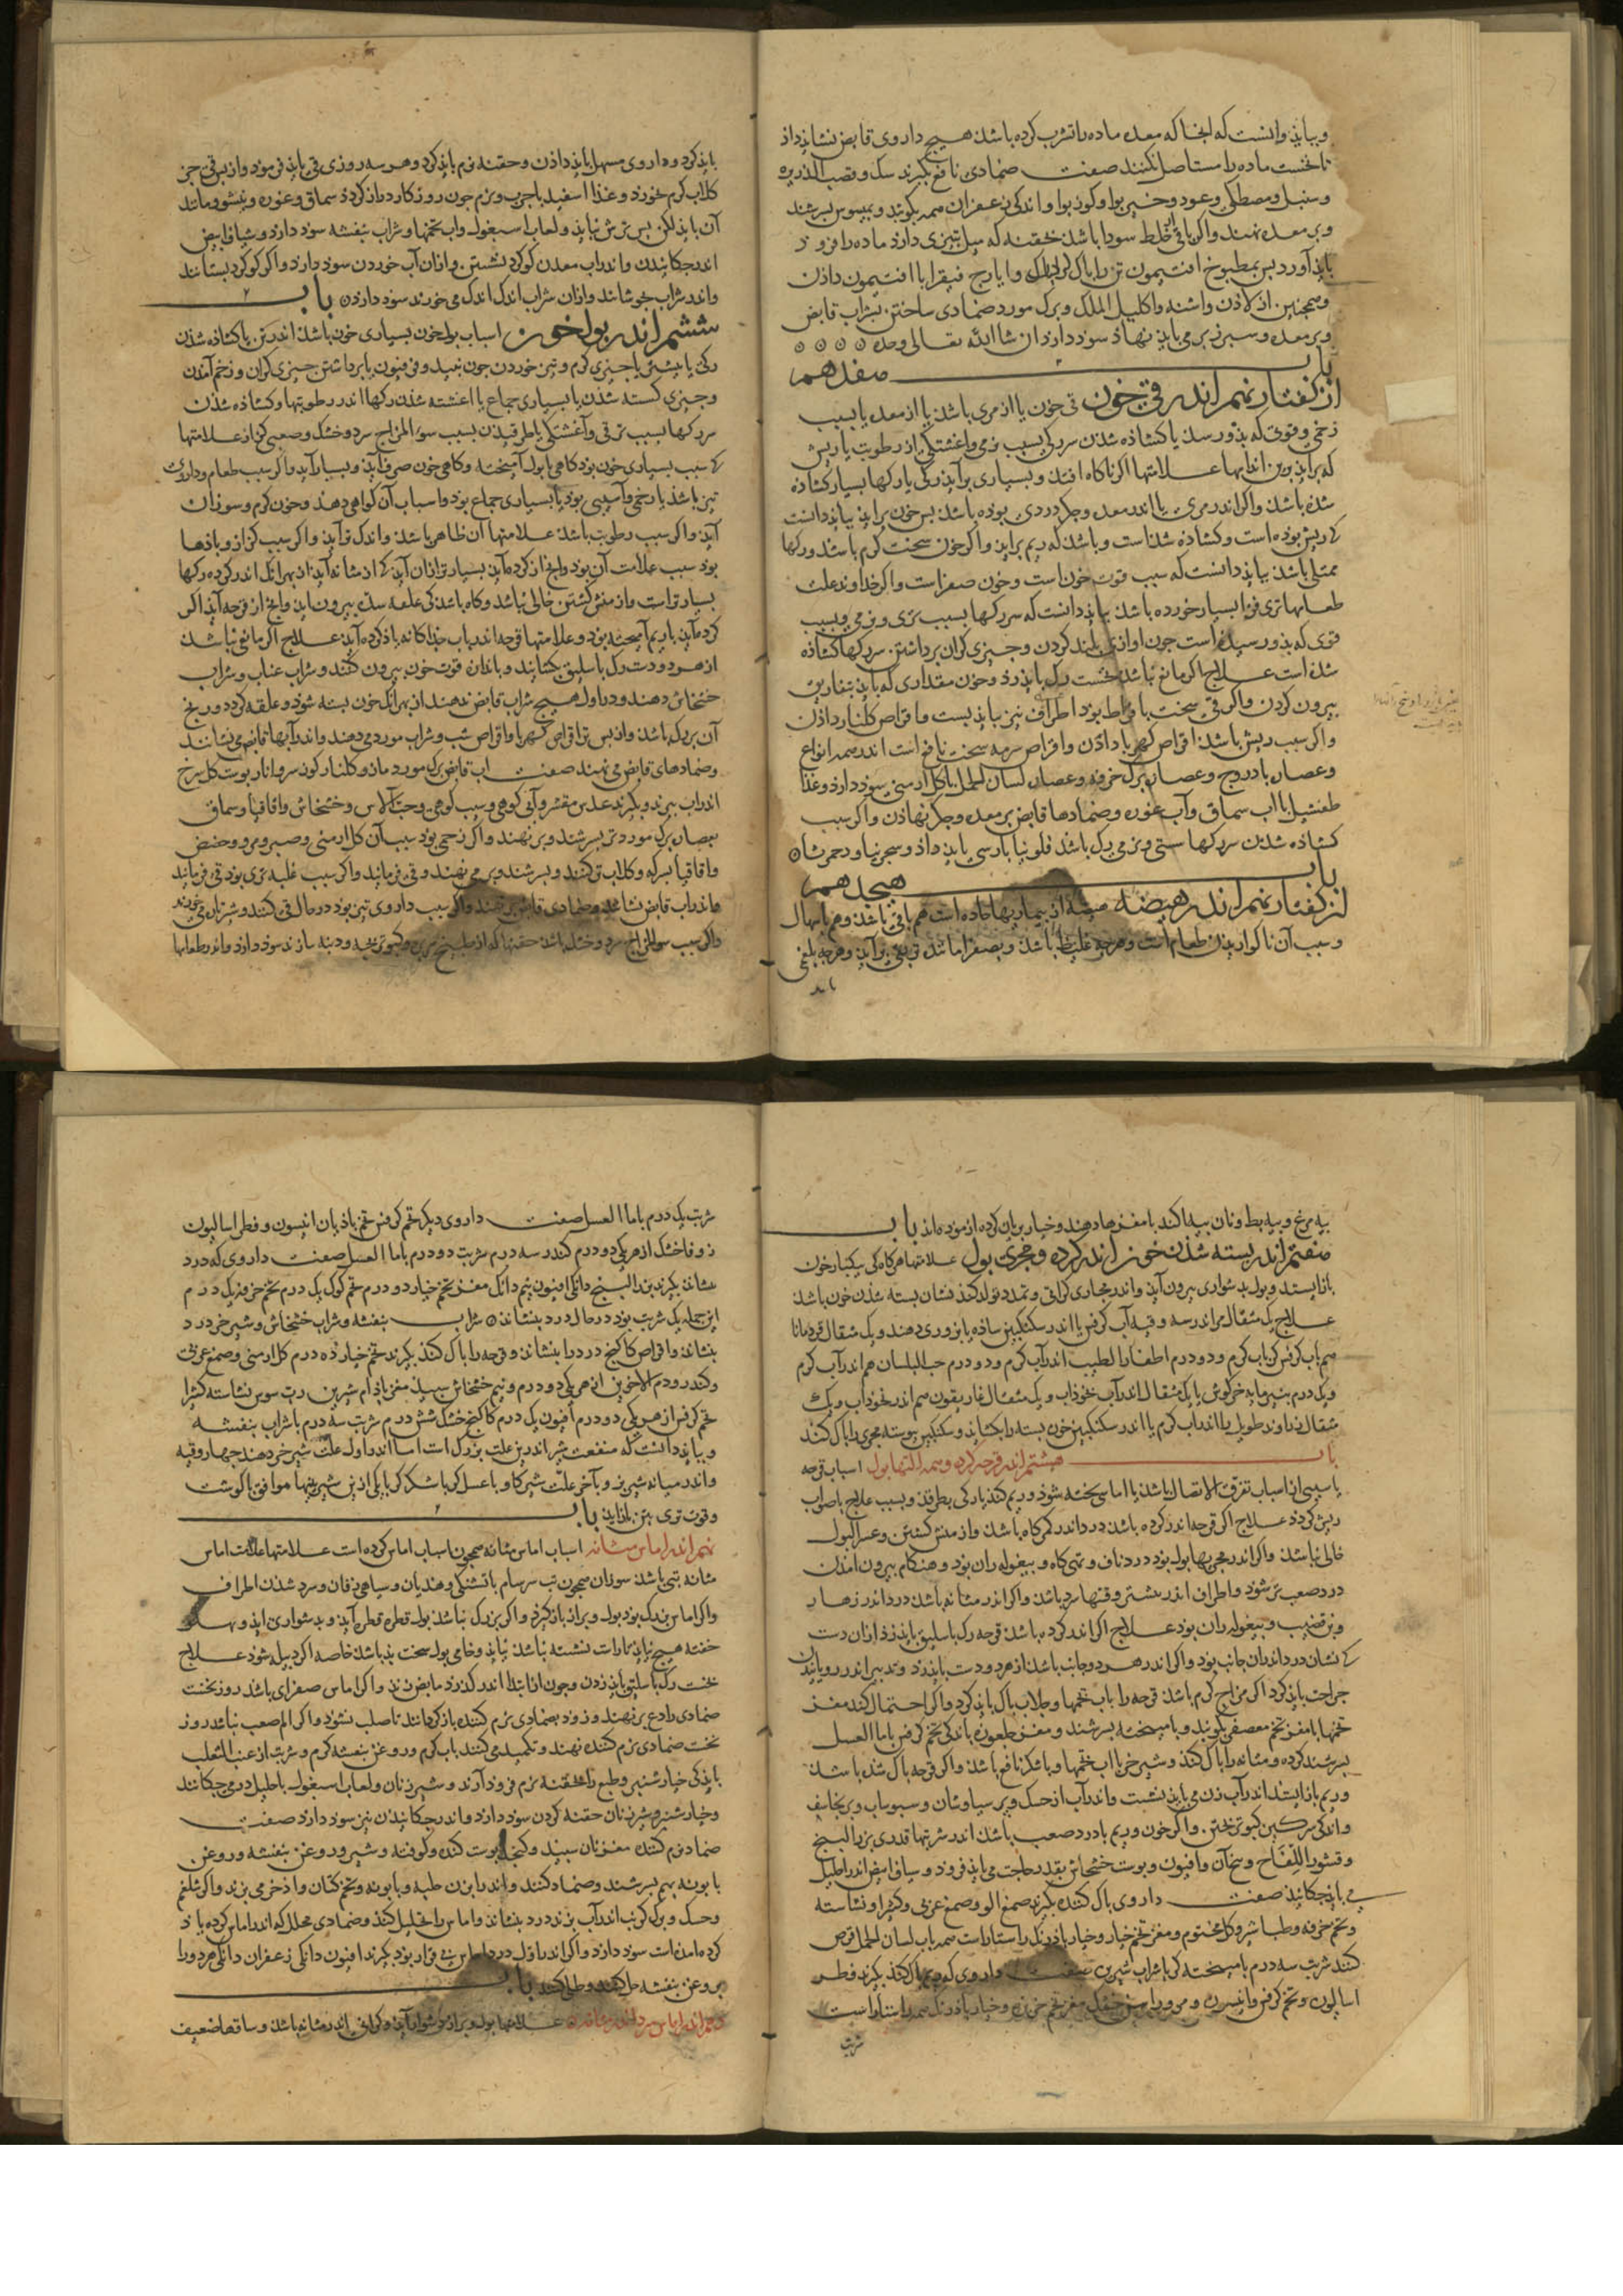 وبباید دانست که انجا که معده ماده را تشرب کرده باشد هیچ داروی قابض نشاید داذ
تا نخست ماده را مستاصل نکنند صفت ضمادی نافع بگیرند سک وقصب الذریره
وسنبل ومصطکی وعود وخیربوا وکوزبوا واندکی زعفران همه بکوبند وبمیسوس بسرشند
وبر معده نهند واکر باقی خلط سودا باشد حقنه که میل بتیزی دارد ماده را فرود
باید آورد پس بمطبوخ افتیمون تن را باک وایارج فیقرا با افتیمون داذن
وهمچنین از لاذن واشنه واکلیل الملک وبرک مورد ضمادی ساختن بشراب قابض
وبر معده وسپرز برمی باید نهاذ سوذ دارد ان شا الله تعالی وحده
باب هفدهم
از کفتار نهم اندر قی خون قی خون یا از مری باشد یا از معده یا بسبب
زخمی وقوتی که بذو رسد یا کشاذه شدن سر رکی بسبب نرمی واغشتکی از رطوبت یا ریش
که براید برین اندامها علامتها اکر ناکاه افتد وبسیاری برآید رکی یا رکها بسیار کشاذه
شده باشد واکر اندر مری یا اندر معده وجکر دردی بوده باشد پس خون براید بباید دانست
که ریش بوده است وکشاذه شده است وباشد که ریم براید واکر خون سخت کرم باشد ورکها
ممتلی باشد بباید دانست که سبب قوت خون است وخون صفراست واکر خداوند علت
طعامها تری فزا بسیار خورده باشد بباید دانست که سر رکها بسبب تری ونرمی وبسبب
قوی که بذو رسید است جون آوازی بلند کردن وجیزی کران برداشتن سر رکها کشاذه
شده است علاج اکر مانع نباشد نخست رک باید زد وخون مقداری که باید بتفاریق
بیرون کردن واکر قی سخت بافراط بود اطراف نیز بباید بست واقراص کلنار داذن
واکر سبب ریش باشد اقراص کهربا داذن واقراص سرمه سخت نافع است اندر همه انواع
وعصاره بادروج وعصاره برک خرفه وعصاره لسان الحمل با کل ارمنی سوذ دارد وغذا
طفشیل با اب سماق وآب غوره وضمادها قابض بر معده وجکر نهاذن واکر سبب
کشاذه شدن سر رکها سستی ونرمی رک باشد فلونیا بارسی باید داذ وسجزنیا
باب هیجدهم
از کفتار نهم اندر هیضه هیضه از بیماریها حاده است هم باقی باشد وهم باسهال
وسبب آن ناکواریدن طعام است وهرچه غلیظ باشد وبصفرا مانند بقی برآید وهرچه بلغمی
باید کرد وداروی مسهل باید داذن وحقنه نرم باید کرد وهر سه روزی قی باید فرمود واز پس قی جز
کلاب کرم نخورد وغذا اسفیدباجرب ونرم جون روزکار دراز کردد سماق وغوره ونیشو ومانند
آن باید لکن بس ترش نباید ولعاب اسبغول واب تخمها وشراب بنفشه سود دارد وشیاف ابیض
اندر جکانیدن واندر اب معدن کوکرد نشستن وازان آب خوردن سود دارد واکر کوکرد بستانند
واندر شراب بجوشانند وازان شراب اندک اندک می خورند سود دارد باب
ششم اندر بول خون اسباب بول خون بسیاری خون باشد اندر تن یا کشاذه شدن
رکی یا بیشتر یا جیزی کرم وتیز خوردن جون نبید وفرفیون یا برداشتن جیزی کران وزخم آمدن
وجیزی کسسته شدن یا بسیاری جماع یا اغشته شدن رکها اندر رطوبتها وکشاذه شدن
سر رکها بسبب ترقی وآغشتکی یا طرقیدن بسبب سوء المزاج سرد وخشک وصعبی کزاز علامتها
که سبب بسیاری خون بود کاهی با بول آمیخته وکاهی خون صرف آید وبسیار آید واکر سبب طعام وداروی
تیز باشد یا زخمی وآسیبی بود یا بسیاری جماع بود واسباب آن کواهی دهد وخون کرم وسوزان
آید واکر سبب رطوبت باشد علامتها آن ظاهر باشد واندک تر آید واکر سبب کزاز وبادها
بود سبب علامت آن بود وانج از کرده آید بسیارتر ازان آید که از مثانه آید از بهر انک اندر کرده رکها
بسیارتر است واز منش کشتن خالی نباشد وکاه باشد کی علقه بسته بیرون اید وانج از قرحه آید اکر
کرده آید با ریم آمیخته بود وعلامتها قرحه اندر باب جذاکانه یاذ کرده آید علاج اکر مانعی نباشد
از هر دو دست رک باسلیق بکشایند وبدان قوت خون بیرون کنند وشراب عناب وشراب
خشخاش دهند ودر اول هیچ شراب قابض ندهند از بهر انک خون بسته شود وعلقه کردد ورنج
آن بزرک باشد واز پس تر اقراص کهربا واقراص شب وشراب مورد می دهند واندر آبها قابض می نشانند
وضمادهای قابض می نهند صفت اب قابض برک مورد مازو کلنار کوز سرو انار پوست کل سرخ
اندر اب بپزند وبکیرند عدس مقشر وآبی کوهی وسیب کوهی وحب الاس وخشخاش واقاقیا وسماق
بعصاره برک مورد تر بسرشند وبر نهند واکر زخمی بود سبب آن کل ارمنی وصبر ومر وحضض
واقاقیا بسرکه وکلاب تر کنند وبسرشند وبر می نهند وقی فرمایند واکر سبب غلبه تری بود قی فرمایند
واندر اب قابض نشانند وضمادی قابض بر نهند واکر سبب داروی تیز بود در حال قی کنند وشیر تازه می خورند
واکر سبب سوالمزاج سرد وخشک باشد حقنها که از طبیخ وکبوتر بچه ودنبه سازند سود دارد واندر طعامها
پیه مرغ وپیه بط ونان بپه اکند با مغزها دهند وخیار بریان کرده ازموده اند باب
هفتم اندر بسته شدن خون اندر کرده ومجری بول علامتها هرکاه کی بیکبار خون
بازایستد وبول بدشواری بیرون آید واندر مجاری کرانی وتمدد تولد کند نشان بسته شدن خون باشد
علاج یک مثقال مر اندر سه وقیه آب کرفس یا اندر سکنکبین ساذه یا بزوری دهند ویک مثقال قردمانا
هم باب کرفس کن باب کرم ودو درم اظفار الطیب اندر آب کرم ودو درم حب البلسان هم اندر آب کرم
ویک درم پنیرمایه خرکوش یا یک مثقال اندر آب نخوذاب ویک مثقال غاریقون هم اندر نخوذاب ویک
مثقال زراوند طویل یا اندر اب کرم یا اندر سکنکبین خون بسته را بکشاید وسکنکبین پیوسته مجری را باک کند
باب هشتم اندر قرحه کرده ومثانه والتهاب بول اسباب قرحه
یا سببی از اسباب تفرق الاتصال باشد یا اماسی بخته شود وریم کند یا رکی بطرقد وبسبب علاج ناصواب
ریش کردد علاج اکر قرحه اندر کرده باشد درد اندر کمرکاه باشد واز منش کشتن وعسر البول
خالی نباشد واکر اندر مجریها بول بود درد ناف وتهی کاه وبیغوله ران بود وهنکام بیرون امدن
درد صعب تر شود واطراف اندر بیشتر وقتها سرد باشد واکر اندر مثانه باشد درد اندر زهار
وبن قضیب وبیغوله ران بود علاج اکر اندر کرده باشد قرحه رک باسلیق باید زد ازان دست
که نشان درد اندران جانب بود واکر اندر هر دو جانب باشد از هر دو دست باید زد وتدبیر اندر رویانیدن
جراحت باید کرد اکر مزاج کرم باشد قرحه را باب تخمها وجلاب باک باید کرد واکر احتمال کند مغز
تخمها با مغز تخم معصفر بکوبند وبا میبخته بسرشند ومغز جلغوزه باندکی تخم کرفس با ما العسل
بسرشند کرده ومثانه را باک کند وشیر خر با اب تخمها وبا شکر نافع باشد واکر قرحه باک شده باشد
وریم بازایستد اندر آب زن می باید نشست واندر آب ازن حسک وپرسیاوشان وسبوساب وبرنجاسف
واندکی سرکین کبوتر پختن واکر خون وریم با درد صعب باشد اندر شربتها قدری بزر البنج
وقشور اللفاح وبیخ آن وافیون وپوست خشخاش بقدر حاجت می باید فزود وشیاف ابیض اندر احلیل
می باید چکانید صفت داروی باک کننده بکیرند صمغ الو وصمغ عربی وکثیرا ونشاسته
وتخم خرفه وطباشیر وکل مختوم ومغز تخم خیار وخیار باذرنک راستاراست همه باب لسان الحمل اقراص
کنند شربت سه درم با میبخته کی یا شراب شیرین صفت داروی که ریم باک کند بکیرند فطر
اسالیون وتخم کرفس وانیسون ومغز تخم خربزه وخیار باذرنک همه راستاراست
شربت
شربت یک درم با ما العسل صفت داروی دیکر تخم کرفس تخم باذیان انیسون وفطراسالیون
زوفا خشک از هر یکی دو درم کندر سه درم شربت دو درم با ما العسل صفت داروی که درد
بنشاند بکیرند بزر البنج دانکی افیون نیم دانک مغز تخم خیار دو درم تخم کوک یک درم تخم خرفه یک درم
این جمله یک شربت بود در حال درد بنشاند شراب بنفشه وشراب خشخاش وشیر خر درد
بنشاند واقراص کاکنج درد را بنشاند وقرحه را باک کند بکیرند تخم خیار ده درم کل ارمنی وصمغ عربی
وکندر ودم الاخوین از هر یکی دو درم ونیم خشخاش سپید مغز باذام شیرین رب سوس نشاسته کثیرا
تخم کرفس از هر یکی دو درم افیون یک درم کاکنج خشک شش درم شربت سه درم با شراب بنفشه
وبباید دانست که منفعت شیر اندرین علت بزرک است اما اندر اول علت شیر خر دهند جهار وقیه
واندر میانه شیر بز وبآخر علت شیر کاو با عسل کر با شکر کر با یکی ازین شیرینیها موافق تا کوشت
وقوت تری بتن بازاید باب
نهم اندر اماس مثانه اسباب اماس مثانه همجون اسباب اماس کرده است علامتها علامت اماس
مثانه تبی باشد سوزان همجون تب سرسام با تشنکی وهذیان وسیاهی زفان وسرد شدن اطراف
واکر اماس بزرک بود بول وبراز بازکیرد واکر بزرک نباشد بول قطره قطره آید وبدشواری اید وبهر
خفته هیچ نیاید تا راست نشسته نباشد نیاید وخامی بول سخت بد باشد خاصه اکر دبیله شود علاج
نخست رک باسلیق باید زدن وجون از ابتدا اندر کذرد مابض زنند واکر اماس صفرای باشد روز نخست
ضمادی رادع برنهند وزود بضمادی نرم کننده بازکردانند تا صلب نشود واکر الم صعب نباشد روز
نخست ضمادی نرم کننده نهند وتکمید می کنند باب کرم وروغن بنفشه کرم وشربت از عنب الثعلب
باندکی خیارشنبر وطبع را بحقنه نرم فروذ آرند وشیر زنان ولعاب اسبغول باحلیل در می جکانند
وخیارشنبر وشیر زنان حقنه کردن سود دارد واندر جکانیدن نیز سود دارد صفت
ضماد نرم کننده مغز نان سپید وکنجد پوست کنده وکوفته وشیر وروغن بنفشه وروغن
بابونه بهم بسرشند وضماد کنند واندر ابزن حلبه وبابونه وتخم کتان واذخر می پزند واکر شلغم
وحسک وبرک کرنب اندر آب بزند درد بنشاند واماس را تحلیل کند وضمادی محلل که اندر اماس کرده یاذ
کرده امده است سود دارد واکر اندر اول درد اماس بی قرار بود بکیرند افیون دانکی زعفران دانکی هر دو را
بروغن بنفشه حل کنند وطلا کنند باب
دهم اندر اماس سرد اندر مثانه علامتها بول وبراز دشوار آید وکرانی اندر مثانه باشد وساقها ضعیف